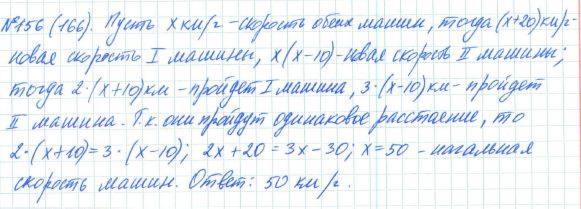 №156 (166). Пусть х км/г - скорость обеих машин, тогда (х+20) км/г-
новая скорость I машины, х(х-10)-новая скорость II машины;
тогда 2·(х+10)км - пройдет I машина, 3·(х-10)км - пройдет
II машина. Т.к. они пройдут одинаковое расстаение, то
2·(х+10)=3·(х-10); 2х+20=3х-30; х=50 - начальная
скорость машин. Ответ: 50 км/г.